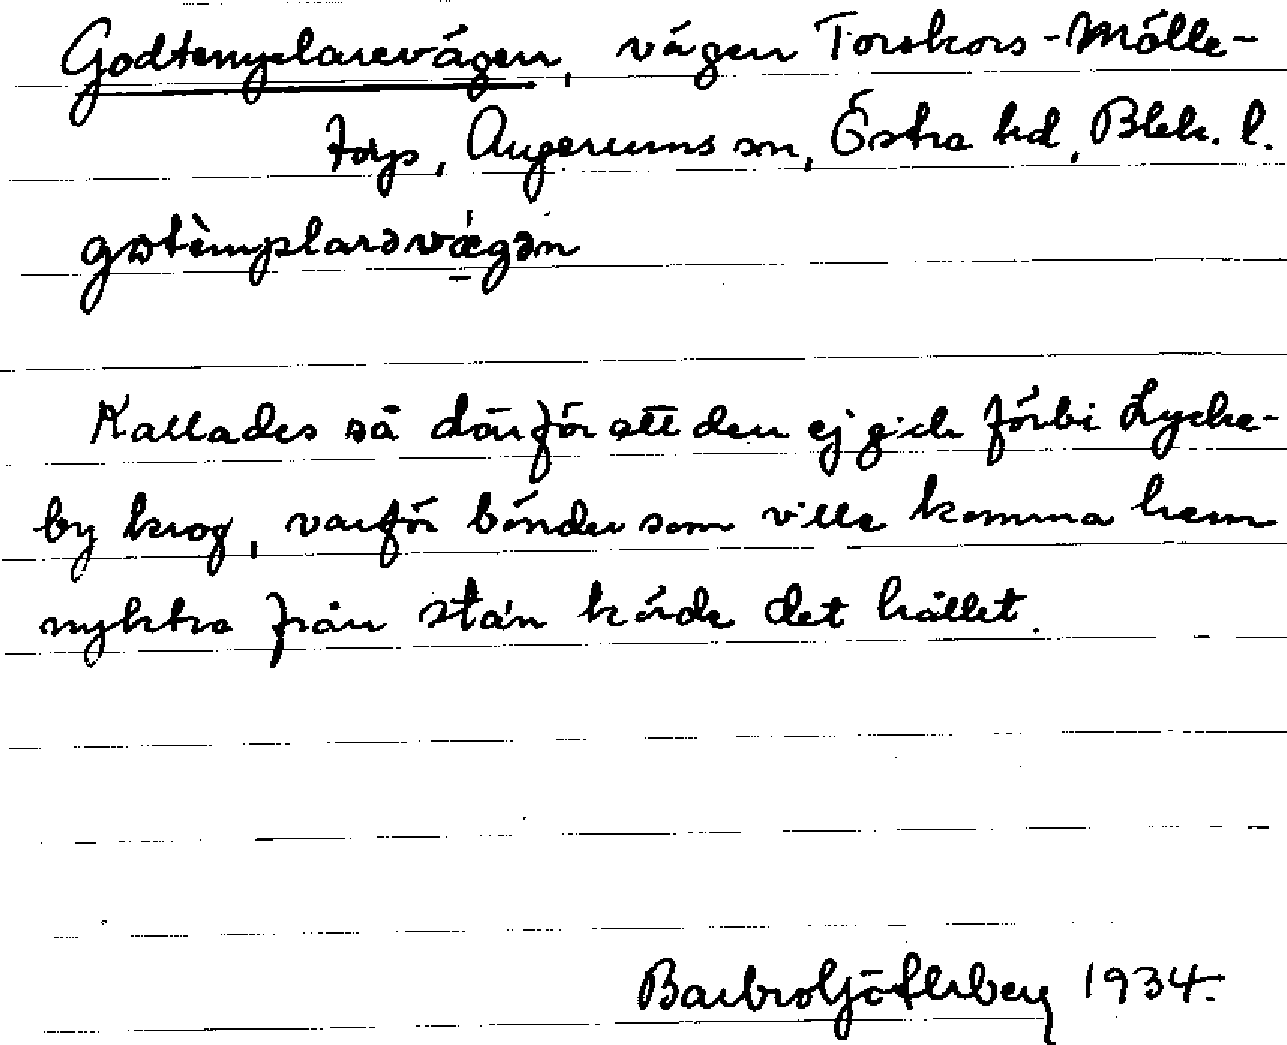 Godtemplarevägen, vägen Torskors-Mölle-
torp, Augerums sn, Östra hd, Blek. l.
gotèmplarəvǽgən
Kallades så därför att den ej gick förbi Lycke-
by krog, varför bönder som ville komma hem
nyktra från sta'n körde det hållet.
Barbro Göthberg 1934.